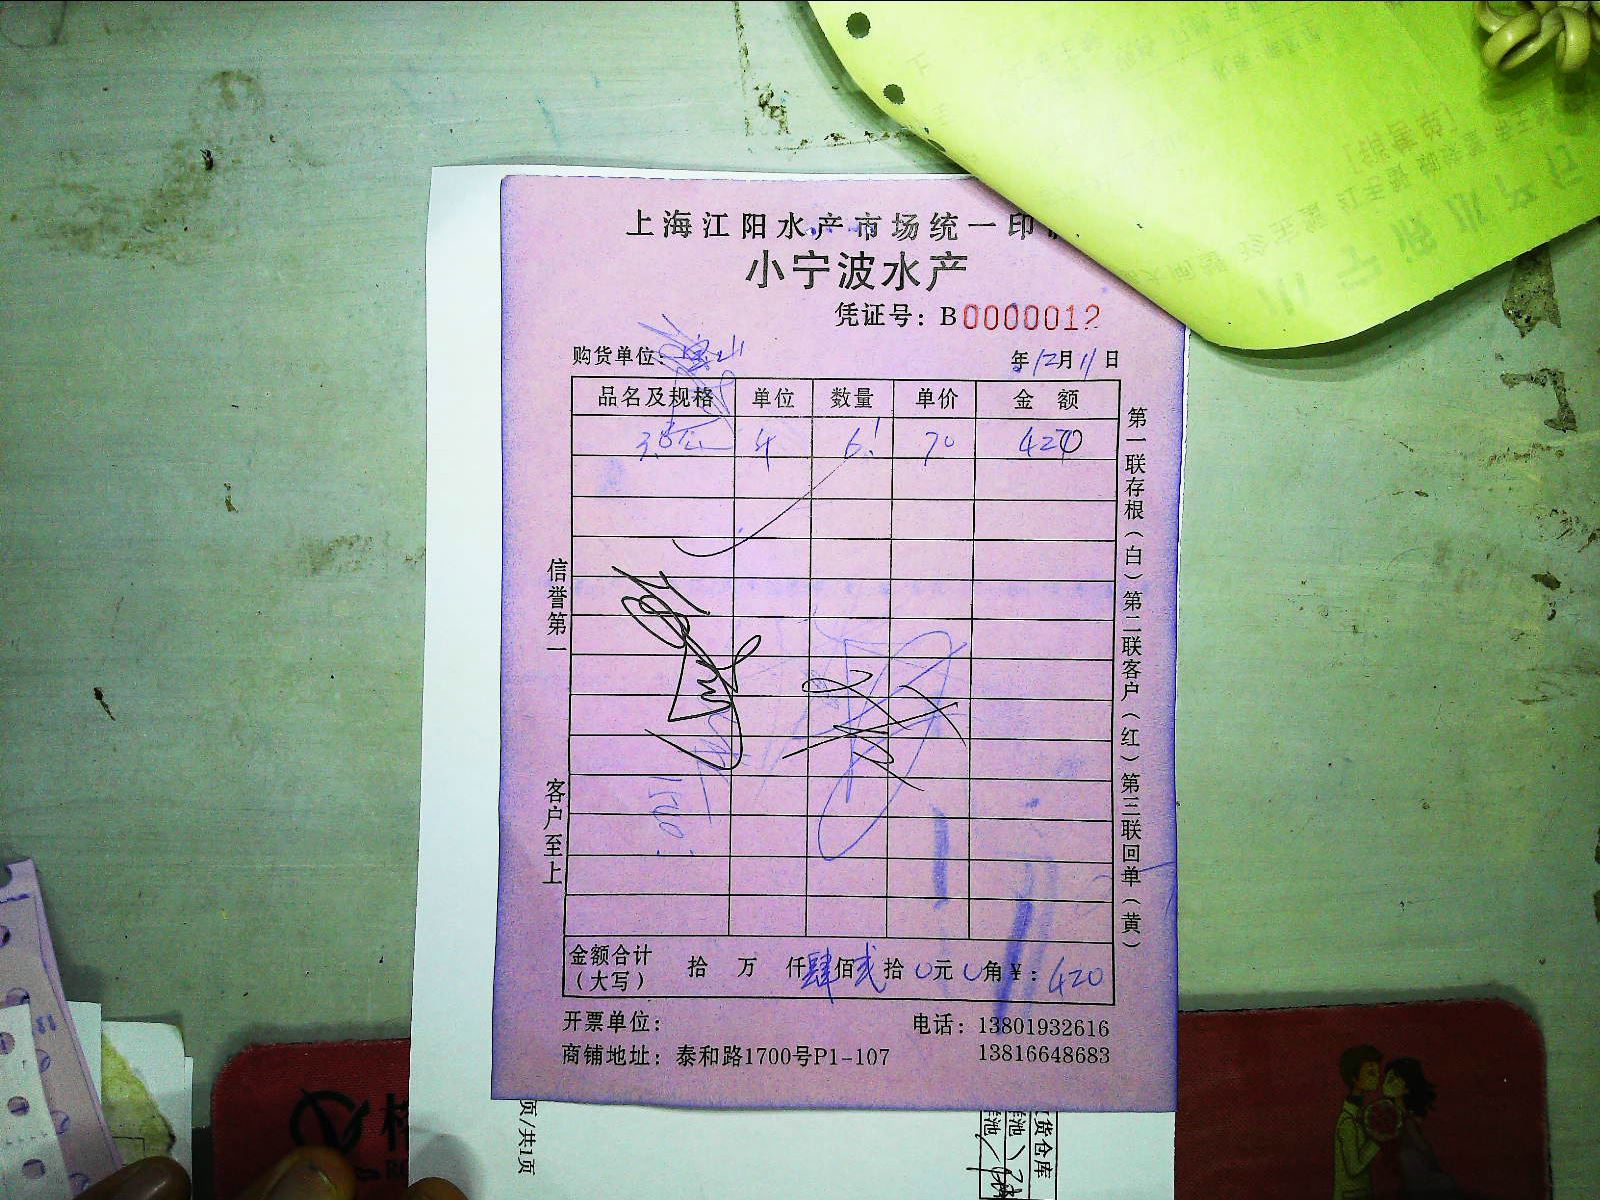 上海江阳水产市场统一印
小宁波水产
凭证号: B0000012
购货单位: 宝山 年12月11日
品名及规格 单位 数量 单价 金额
6! 70 420
第一联存根(白)第二联客户(红)第三联回单(黄)
信誉第一
客户至上
金额合计(大写) 拾 万 仟肆佰贰拾0元0角¥: 420
开票单位: 电话: 13801932616
商铺地址: 泰和路1700号P1-107 13816648683
页/共1页
货仓库